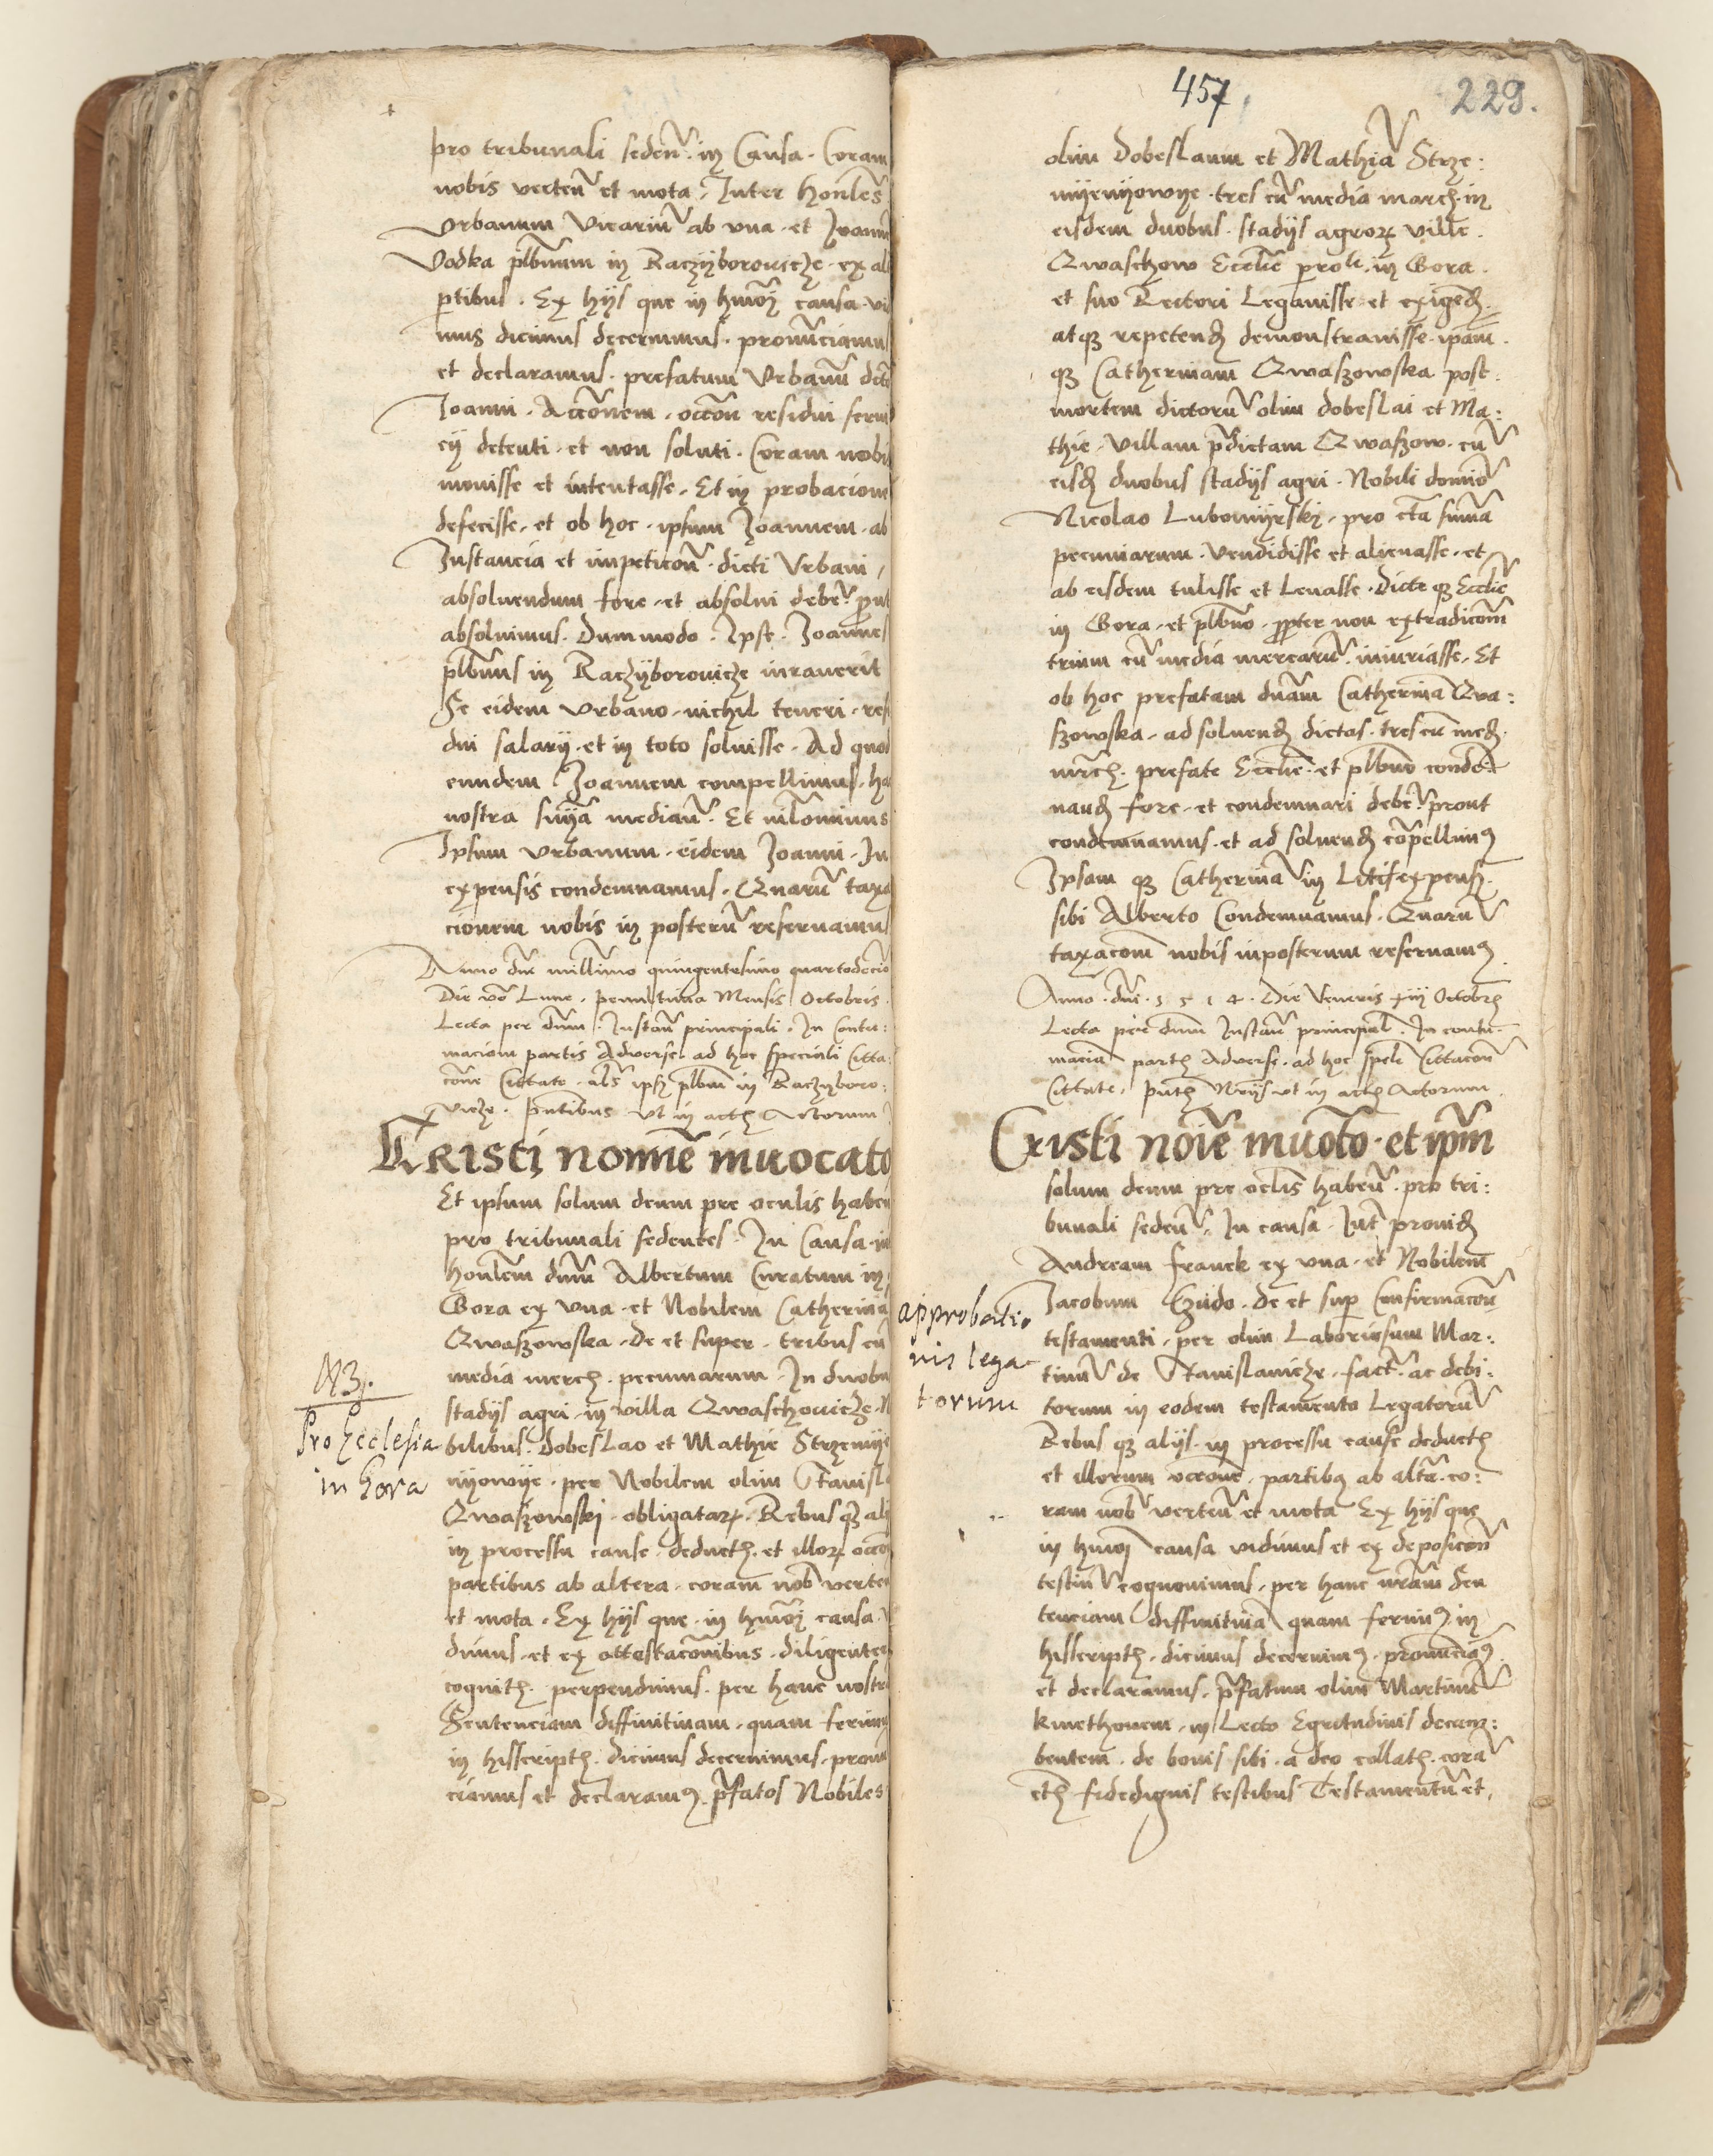 pro tribunali seden̄. in Causa. Coram
nobis verten̄ et mota, Inter honles
Vrbanum Vicariū ab vna. et Joann
Vodka plbnum in Raczÿborovicze. ex al
ptibus. Ex hÿs que in hmōi causa vi
mus dicimus decernimus. pronūciamus
et declaramus. prefatum Vrbanū dict
Joanni. Acc̄onem. occ̄on residui servi
cÿ detenti. et non soluti. Coram nobis
movisse et intentasse. Et in probacione
defecisse. et ob hoc. ipsum Joannem. ab
Instancia et impetic̄on. dicti Vrbani,
absoluendum fore. et absolui debē. put
absoluimus. Dummodo. Ipse. Joannes
plbnus in Raczÿborovicze iuraverit
Se eidem Vrbano. nichil teneri. resi
dui salarÿ. et in toto soluisse. Ad quod
eundem Joannem compellimus. ha
nostra snīa median̄. Et nīlominus
Ipsum Vrbanum. eidem Joanni. In
expensis condemnamus. Quarū taxa
cionem nobis in posterū reservamus
Anno dn̄i millīmo quingentesimo quartodecīo
Die v̄o Lune. penultima Mensis Octobris.
Lecta per dnm̄. Instan̄ principali. In Contu:
maciam partis Adverse. ad hoc speciali Citta
c̄one Cittate. als̄ ipsꝫ plbm̄ in Raczÿboro:
vicze. pn̄tibus vt in actꝭ Actorum
Cristi nomīe invocato
Et ipsum solum deum pre oculis haben
pro tribunali sedentes. In Causa. in
honlem̄ dnm̄ Albertum Curatum in
Gora ex vna. et Nobilem Catherina
Qwaszowska. De et super. tribus cū
media march. pecuniarum. In duobu
stadÿs agri. in villa Qwaschovicze. N
bilibus. DobesLao et Mathie Strzemÿe
nÿowÿe. per Nobilem olim Stanisla
Qwaszowski. obligataꝝ. Rebus qꝫ ali
in processu cause. deductꝭ. et illoꝝ occ̄on
partibus ab altera. coram nob̄ verten
et mota. Ex hÿs que. in hmōi causa. v
dimus. et ex attestac̄onibus. diligenter
cognitꝭ. perpendimus. per hanc nostra
Sentenciam diffinitivam. quam ferimus
in hisscriptꝭ. dicimus decernimus. pronu
ciamus et declaramꝰ. p̄fatos Nobiles
N3.
Pro Ecclesia
in Gora
457
229.
olim Dobeslaum et Mathiā Strze:
mÿenÿowÿe. tres cū media march. in
eisdem duobus. stadÿs agroꝝ ville.
Qwaschow Ecclie paroli. in Gora.
et suo Rectori Legavisse et exigend.
atqꝫ repetend demonstravisse. ipam.
qꝫ Catherinam Qwaszowska post.
mortem dictorū olim dobesLai et Ma:
thie. Villam p̄dictam Qwaszow. cū
eisd duobus stadÿs agri. Nobili domīo
Nicolao Lubomÿrski. pro cta suma
pecuniarum. Vendidisse et alienasse. et
ab eisdem tulisse et Levasse. Dicte qꝫ Ecclie
in Gora. et plbno. ppter non extradic̄om
trium cū media mercarū. iniuriasse. Et
ob hoc prefatam dnam Catherinā Qva:
szowska. ad soluend dictas. tres cū med.
mrch. prefate Ecclie. et plbno condē
nand fore. et condemnari debē. prout
condemnamus. et ad soluend cōpellimꝰ
Ipsam qꝫ Catherinā in Litis expensꝭ.
sibi Alberto Condemnamus. Quarū
taxac̄om nobis inposterum reservamꝰ.
Anno. dni. 1 5 1 4. Die Veneris xiii Octobrꝭ
Lecta per dnm Instan̄ principal. In contu.
maciā partꝭ Adverse. ad hoc spēli Cittac̄on
Cittate. pn̄tꝭ N̄riis vt in actꝭ Actorum.
Cristi nōīe invoto. et ipm̄
solum deum pre oclis habeñ. pro tri:
bunali sedeñ. In causa. Int̄ provid
Andream Franck ex vna. et Nobilem
Jacobum Gzudo. De et sup Confirmac̄on
testamenti. per olim Laboriosum Mar:
tinū de Stanislavicze. fact̄. ac debi:
torum in eodem testamento Legatorū
Rebus qꝫ aliÿs. in processu cause deductꝭ
et illorum occ̄one. partibꝫ ab altā. co:
ram nob̄ verten̄ et mota Ex hÿs que
in hmōi causa vidimus et ex deposic̄on
testiū cognovimus. per hanc nr̄am Sen
tenciam diffinitivā quam ferimꝰ in
hisscriptꝭ. dicimus decernimꝰ. pronūciamꝰ.
et declaramus. p̄fatum olim Martinū
kmethonem. in Lecto Egritudinis decum:
bentem. de bonis sibi. a deo collatꝭ. corā
ctꝭ fidedignis testibus Testamentū et,
approbatio
nis lega
torum